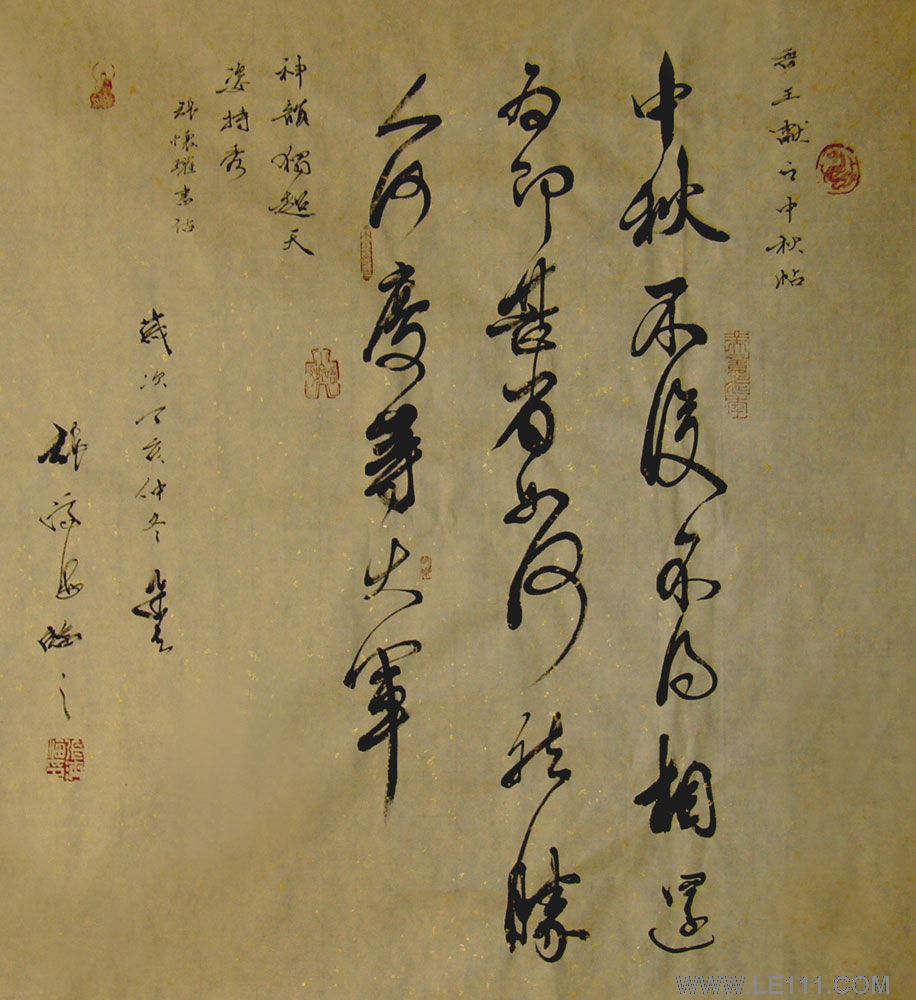 晉王獻之中秋帖
中秋不復不得相還
為即甚省如何然勝
人何慶等大軍
神韻獨超天
姿特秀
張懷瓘書估
歲次丁亥仲冬
張海臨之
WWW.LE111.COM